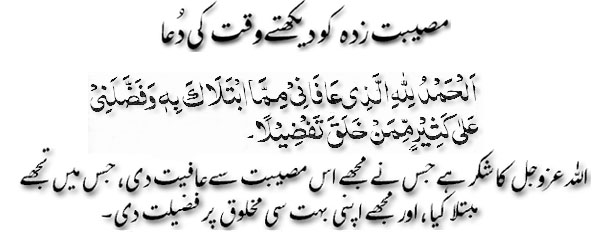 مصیبت زدہ کو دیکھتے وقت کی دُعا
اَلْحَمْدُ لِلّٰهِ الَّذِیْ عَافَانِیْ مِمَّا ابْتَلَاكَ بِهٖ وَفَضَّلَنِیْ
عَلٰی كَثِیْرٍ مِّمَّنْ خَلَقَ تَفْضِیْلًا۔
اللہ عزوجل کا شکر ہے جس نے مجھے اس مصیبت سے عافیت دی، جس میں تجھے
مبتلا کیا، اور مجھے اپنی بہت سی مخلوق پر فضیلت دی۔